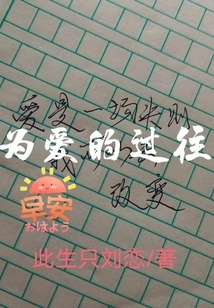 爱是一场
为爱的过往
改变
早安
おはよう
此生只刘恋/著